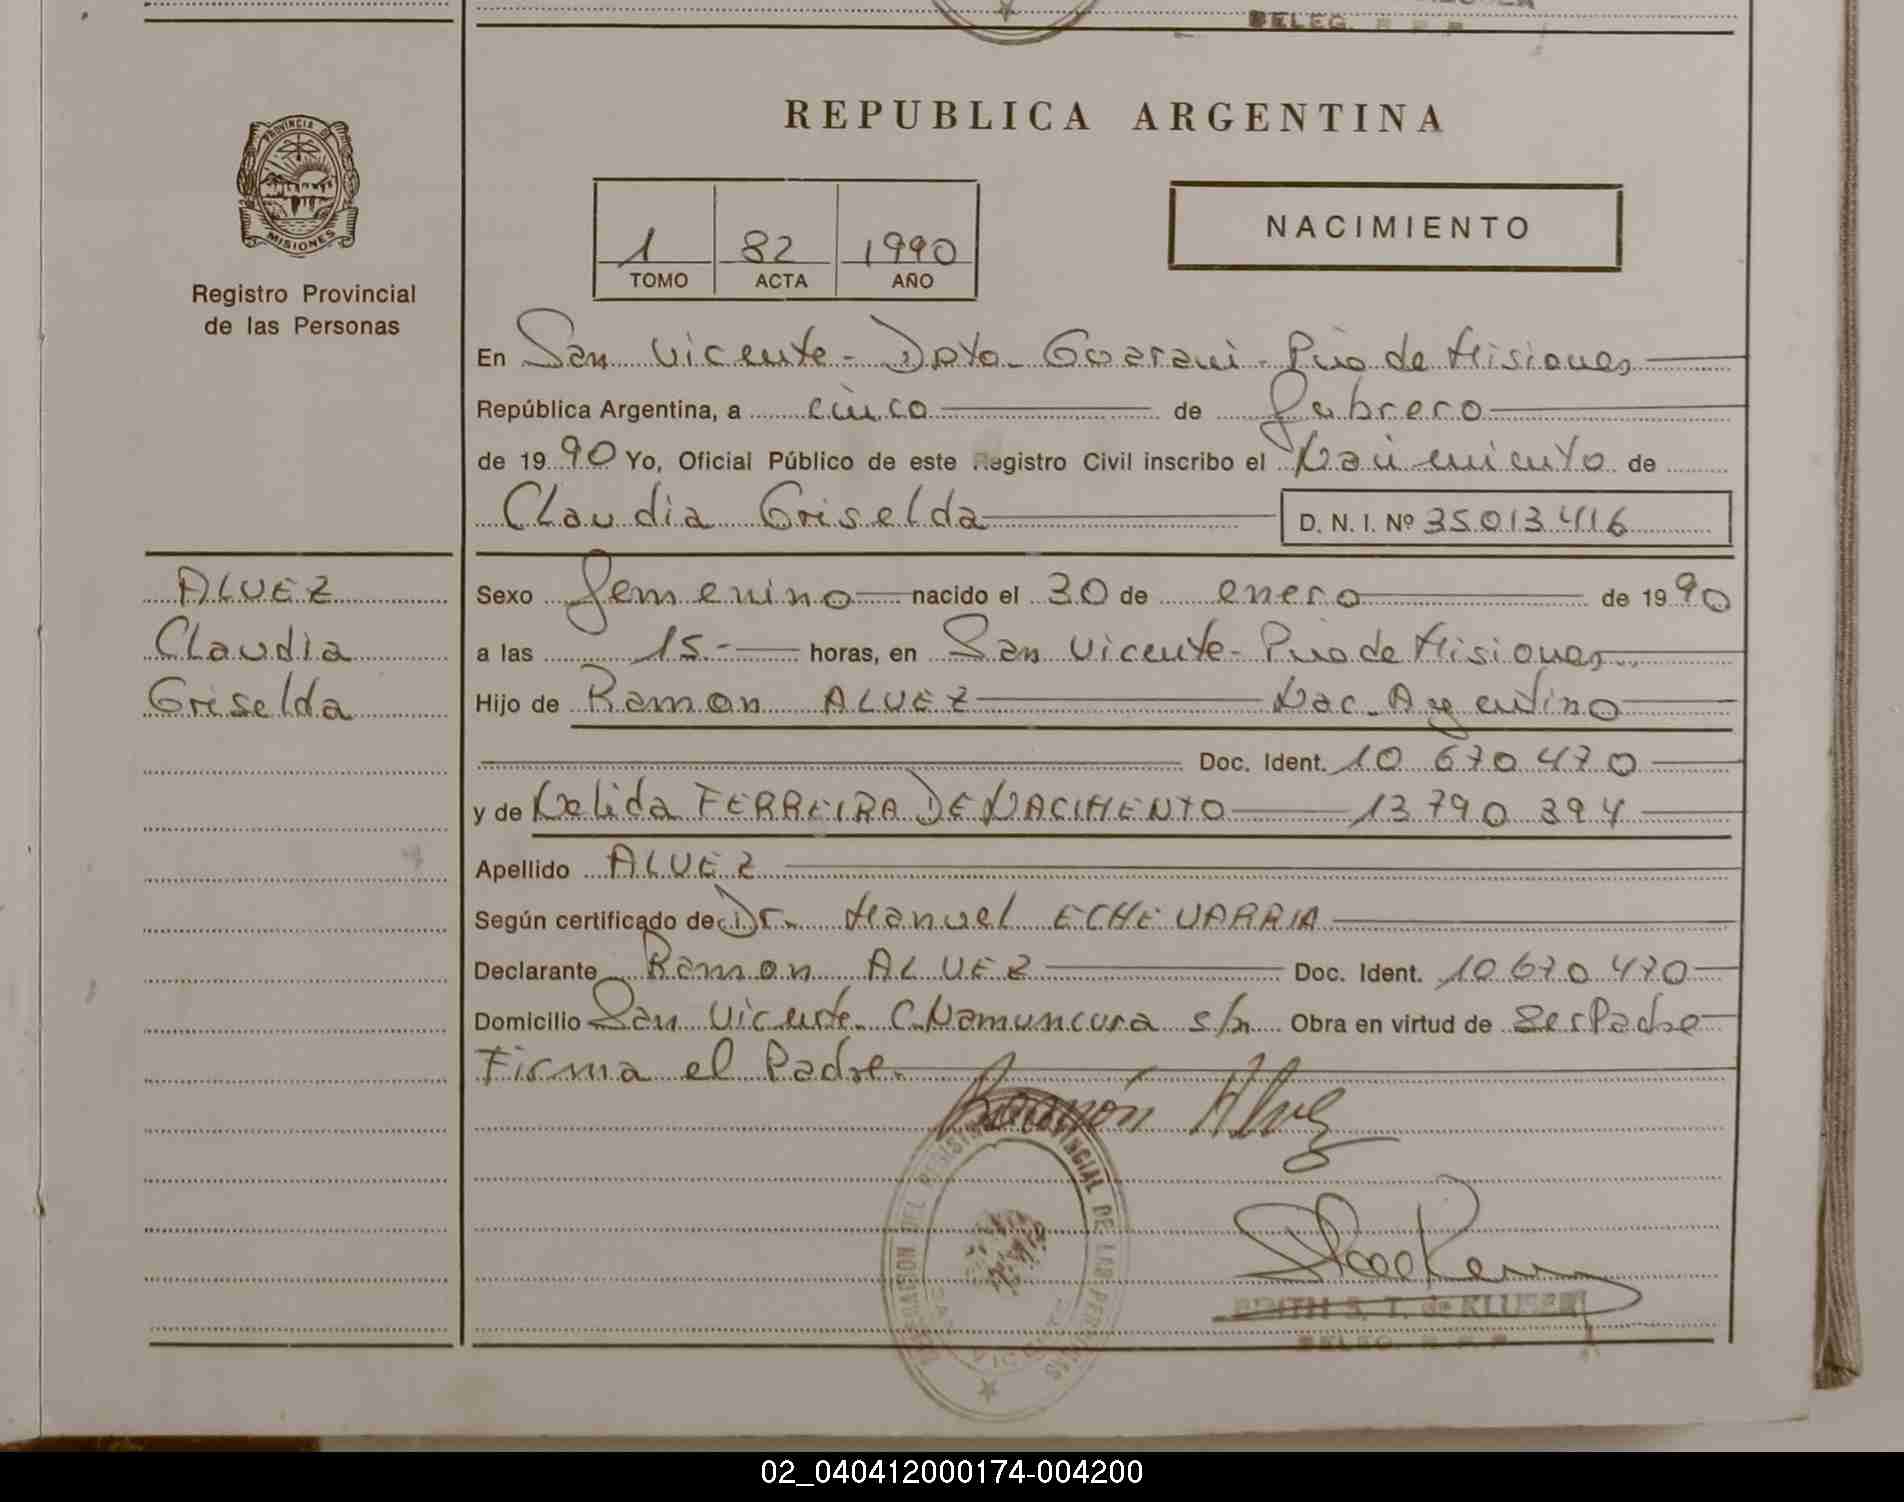 DELEG. R. P. P.
REPUBLICA ARGENTINA
PROVINCIA DE
MISIONES
Registro Provincial
de las Personas
1 82 1990
TOMO ACTA AÑO
NACIMIENTO
En San Vicente - Dpto. Guarani - Pcia de Misiones
República Argentina, a cinco de febrero
de 1990 Yo, Oficial Público de este Registro Civil inscribo el Nacimiento de
Claudia Griselda D. N. I. Nº 35013416
ALVEZ
Claudia
Griselda
Sexo femenino nacido el 30 de enero de 1990
a las 15.- horas, en San Vicente - Pcia de Misiones
Hijo de Ramon ALVEZ Nac. Argentino
Doc. Ident. 10 670 470
y de Nelida FERREIRA DE NACIMENTO 13 790 394
Apellido ALVEZ
Según certificado de Dr. Manuel ECHEVARRIA
Declarante Ramon ALVEZ Doc. Ident. 10670470
Domicilio San Vicente C.Namuncura s/n Obra en virtud de Ser Padre
Firma el Padre.
Ramón Alvez
DEL REGISTRO PROVINCIAL DE LAS PERSONAS
EDITH S. T. de KLUSER
DELEG. R. P. P.
02_040412000174-004200